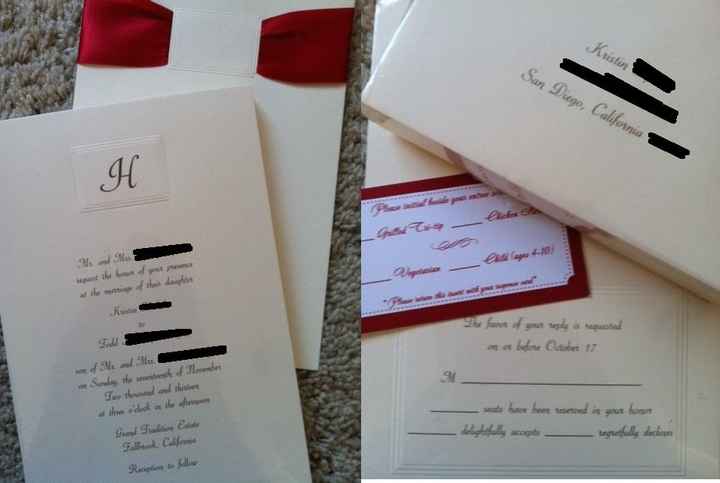 H
Mr. and Mrs.
request the honor of your presence
at the marriage of their daughter
Kristin
to
Todd
son of Mr. and Mrs.
on Sunday, the seventeenth of November
Two thousand and thirteen
at three o'clock in the afternoon
Grand Tradition Estate
Fallbrook, California
Reception to follow
Kristin
San Diego, California
(Please initial beside your entree
Grilled Tri-tip
Chicken
Vegetarian
Child (ages 4-10)
*(Please return this insert with your response card*
The favor of your reply is requested
on or before October 17
M
seats have been reserved in your honor
delightfully accepts regretfully declines